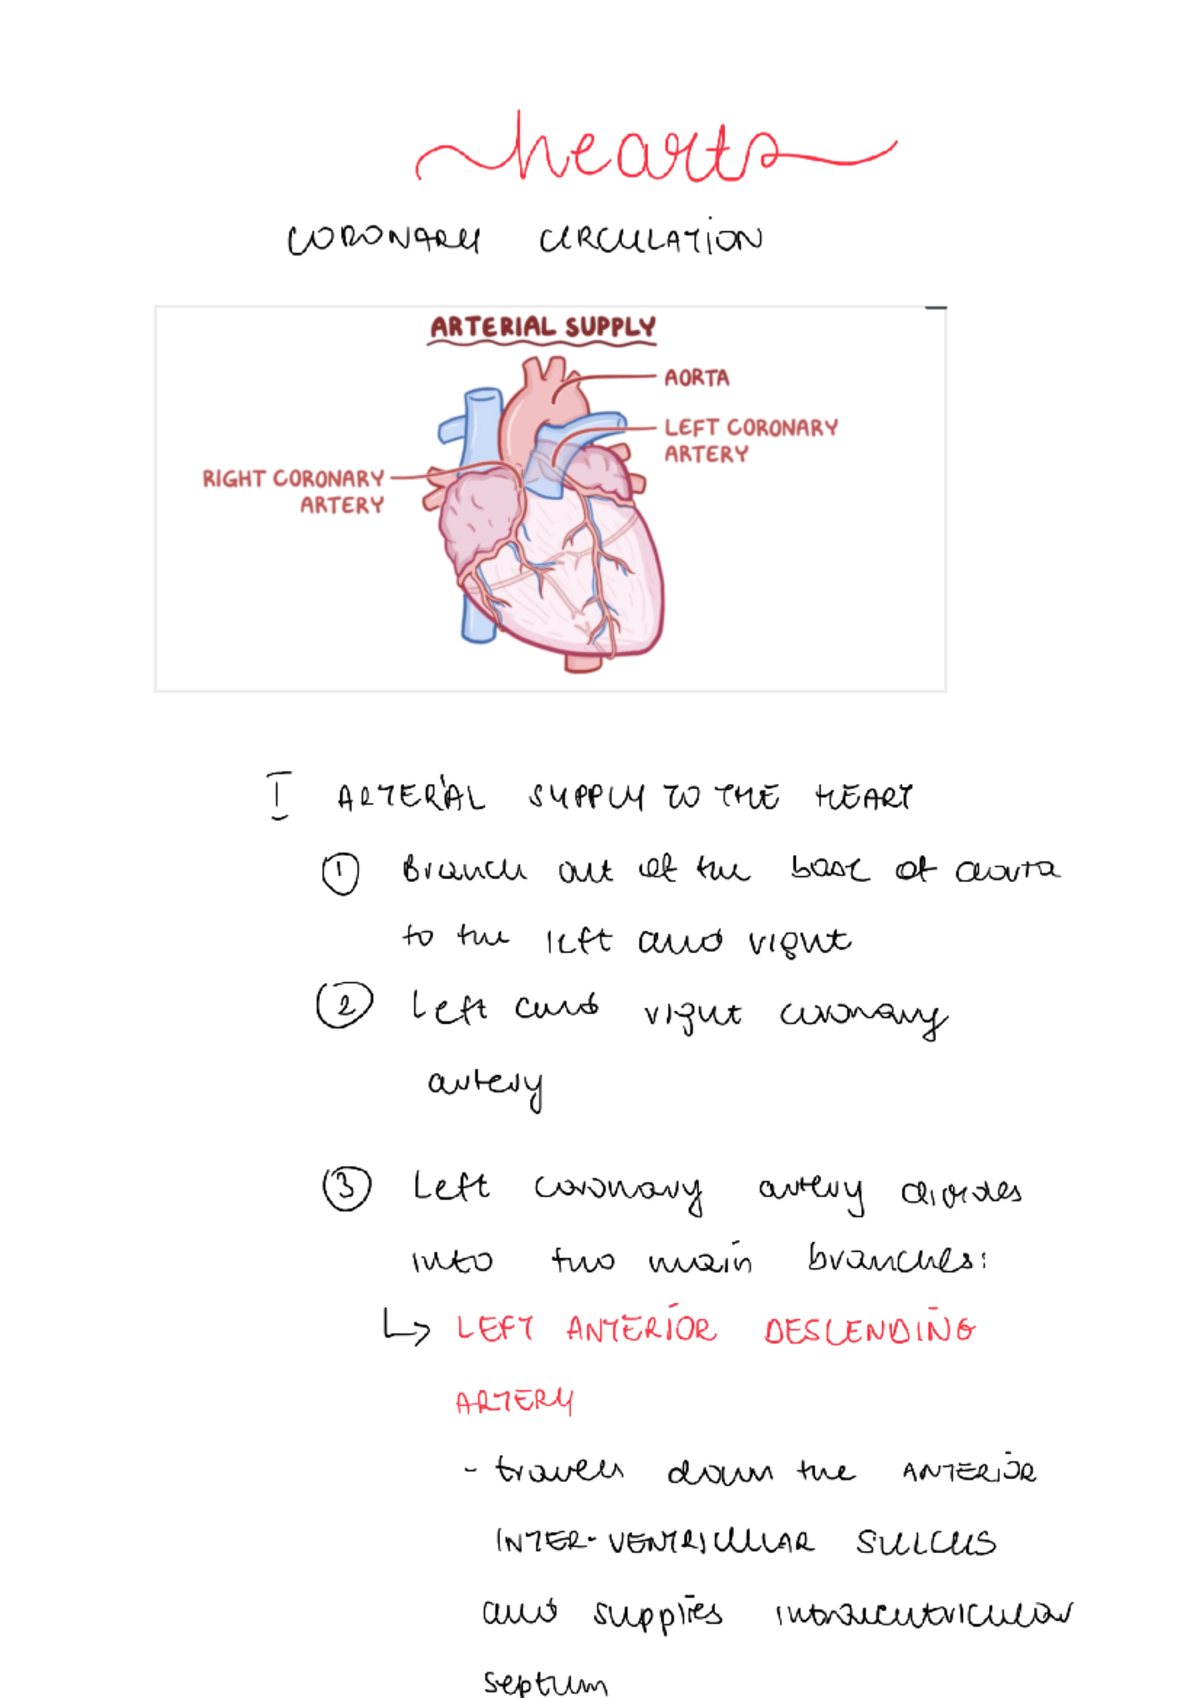 hearts
CORONARY CIRCULATION
ARTERIAL SUPPLY
AORTA
LEFT CORONARY
ARTERY
RIGHT CORONARY
ARTERY
I ARTERIAL SUPPLY TO THE HEART
1 Branch out of the base of aorta
to the left and right
2 Left and right coronary
artery
3 Left coronary artery divides
into two main branches:
↳ LEFT ANTERIOR DESCENDING
ARTERY
- travels down the ANTERIOR
INTER-VENTRICULAR SULCUS
and supplies
septum